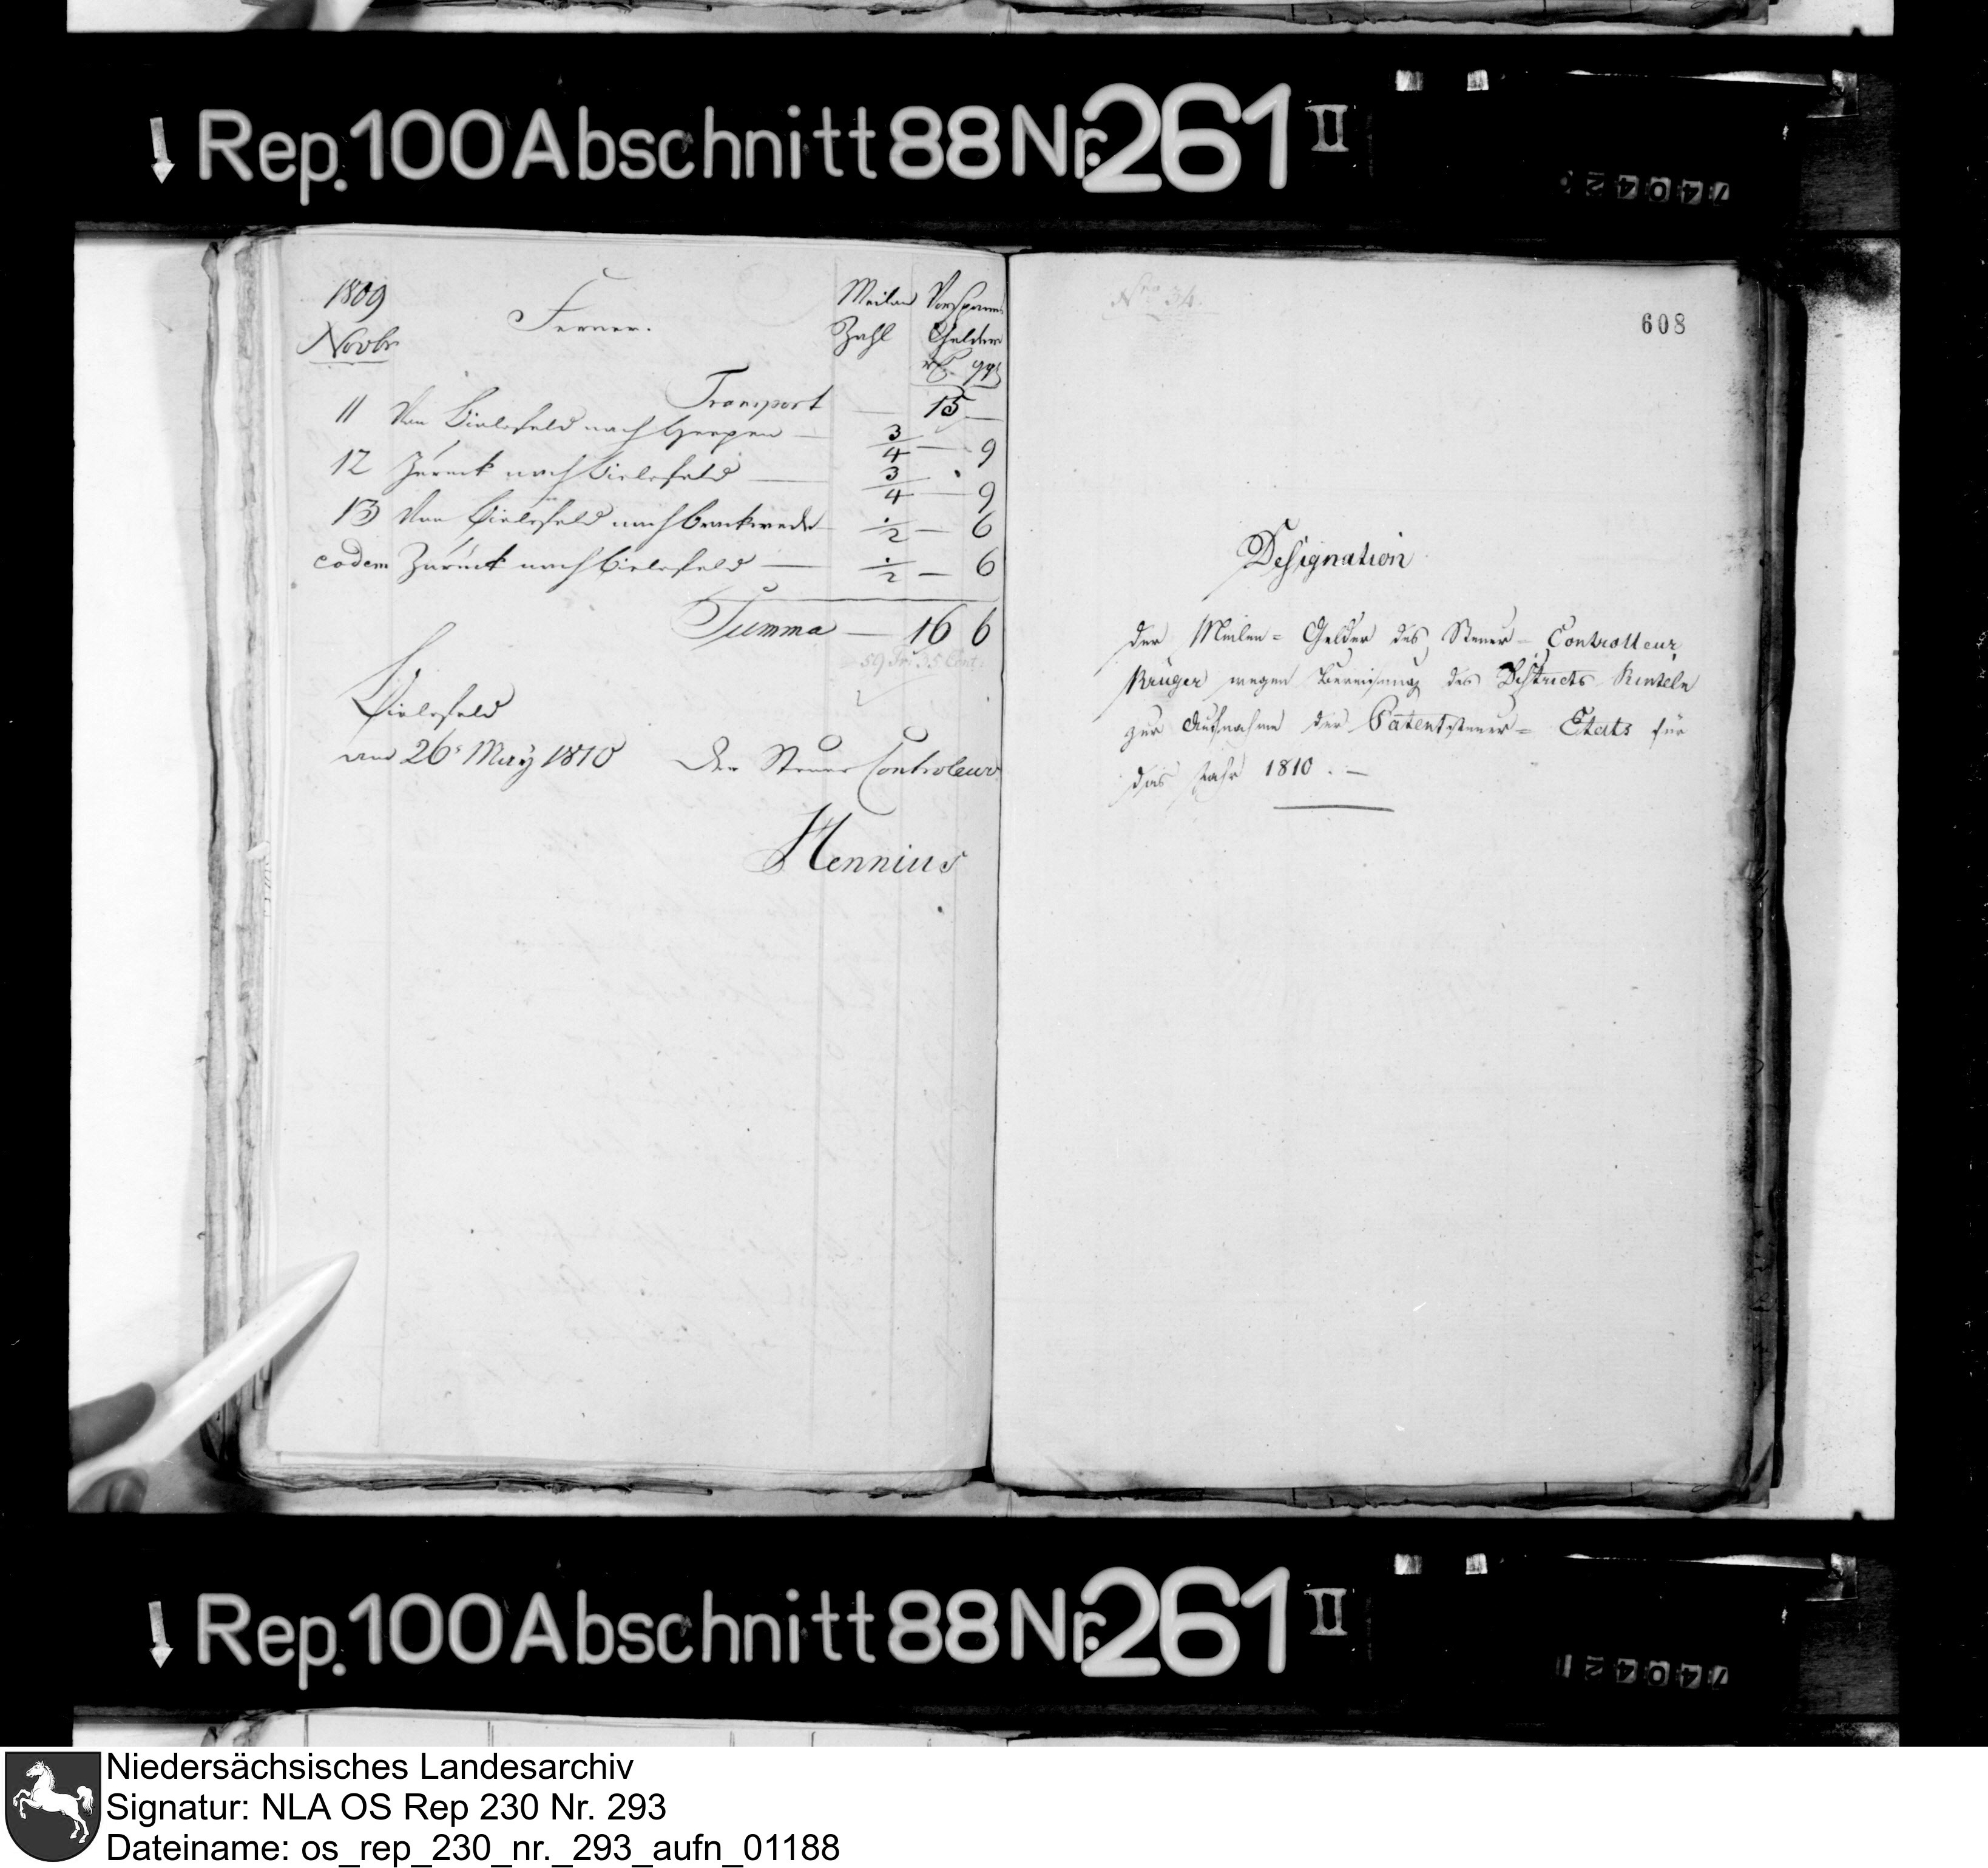 Rep. 100 Abschnitt 88 Nr. 261 II
74042
1809
Novbr.
Ferner.
Meilen Zahl
Vorspann Gelder
rthl. ggr
Transport — 15 —
11 Von Bielefeld nach Heepen — 3/4 — 9
12 Zurück nach Bielefeld — 3/4 — 9
13 Von Bielefeld nach Brackwede — 1/2 — 6
eodem Zurück nach Bielefeld — 1/2 — 6
Summa — 16 6
59 Fr. 35 Cent.
Bielefeld
den 26t May 1810 Der Steuer Controleur
Hennius
Nro 34.
608
Designation
der Meilen= Gelder des Steuer- Controlleur
Krüger wegen Bereisung des Districts Rinteln
zur Aufnahme der Patentsteuer= Etats für
das Jahr 1810. —
Rep. 100 Abschnitt 88 Nr. 261 II
74042
Niedersächsisches Landesarchiv
Signatur: NLA OS Rep 230 Nr. 293
Dateiname: os_rep_230_nr._293_aufn_01188